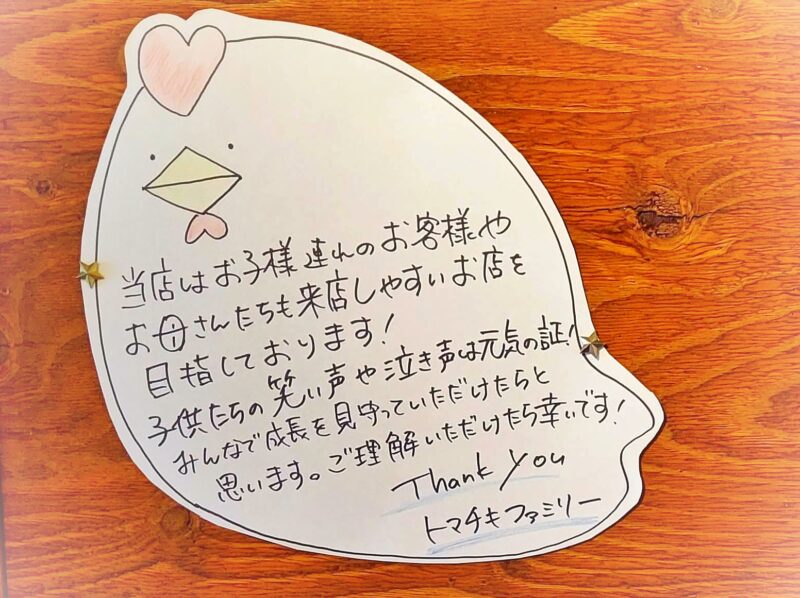 当店はお子様連れのお客様や
お母さんたちも来店しやすいお店を
目指しております!
子供たちの笑い声や泣き声は元気の証!
みんなで成長を見守っていただけたらと
思います。ご理解いただけたら幸いです!
Thank You
トマチキファミリー